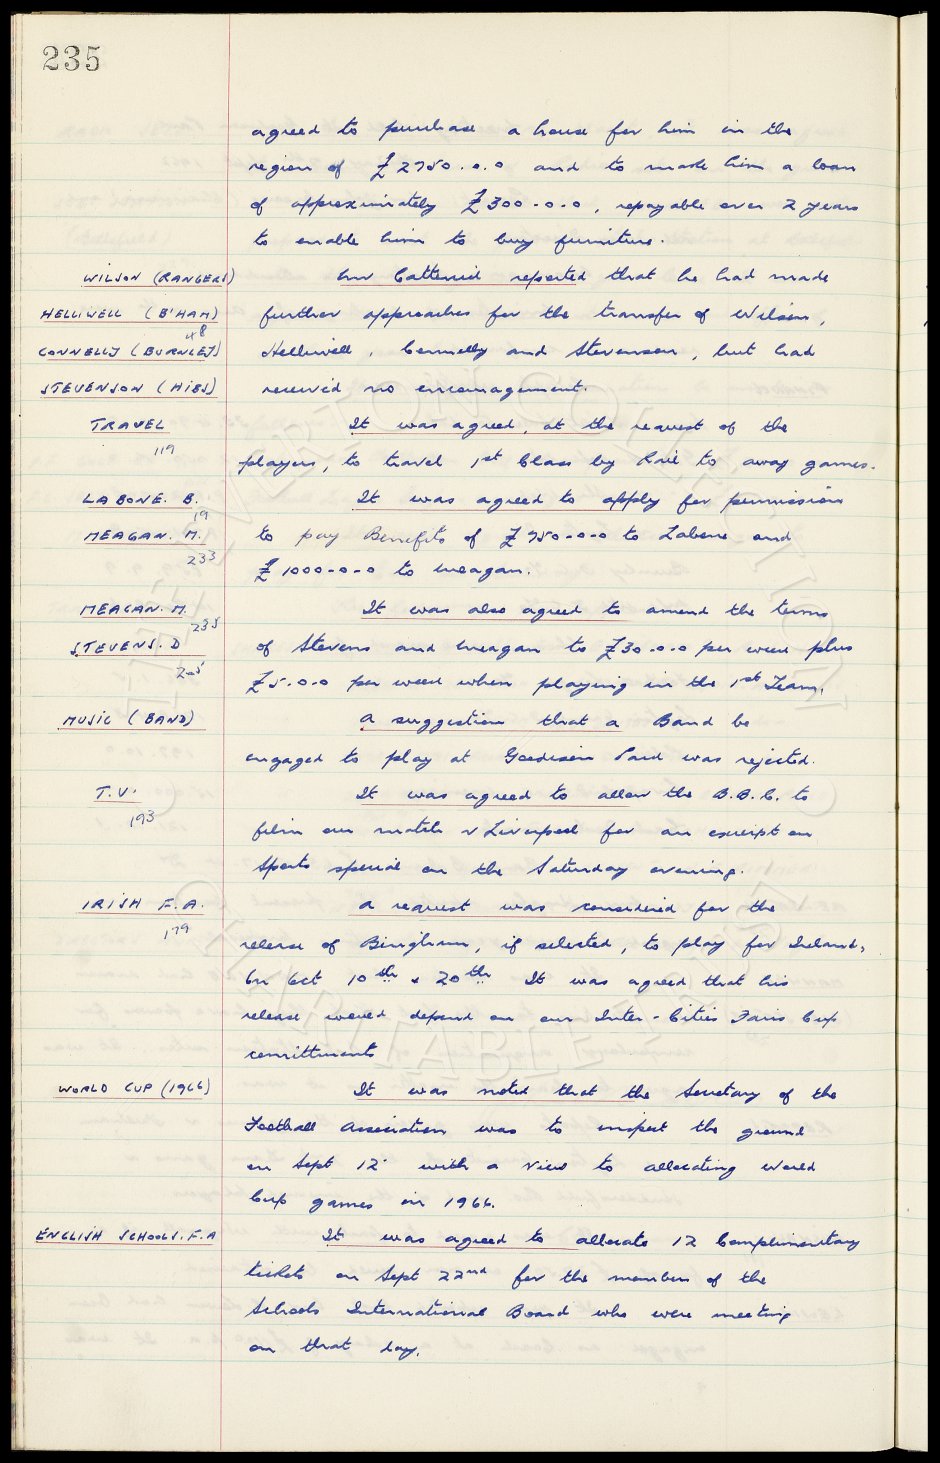 235
agreed to purchase a house for him in the
region of £2750.0.0 and to make him a loan
of approximately £300-0-0, repayable over 2 years
to enable him to buy furniture.
WILSON (RANGERS) Mr Catterick reported that he had made
HELLIWELL (B'HAM) further approaches for the transfer of Wilson,
48
CONNELLY (BURNLEY) Helliwell, Connelly and Stevenson, but had
STEVENSON (HIBS) received no encouragement.
TRAVEL It was agreed, at the request of the
119
players, to travel 1st Class by Rail to away games.
LABONE. B. It was agreed to apply for permission
19
MEAGAN. M. to pay Benefits of £750-0-0 to Labone and
233
£1000-0-0 to Meagan.
MEAGAN. M. It was also agreed to amend the terms
235
STEVENS. D of Stevens and Meagan to £30.0.0 per week plus
205
£5.0.0 per week when playing in the 1st Team.
MUSIC (BAND) A suggestion that a Band be
engaged to play at Goodison Park was rejected.
T.V. It was agreed to allow the B.B.C. to
193
film our match v Liverpool for an excerpt on
Sports special on the Saturday evening.
IRISH F.A. A request was considered for the
179
release of Bingham, if selected, to play for Ireland,
on Oct 10th & 20th It was agreed that his
release would depend on our Inter-Cities Fairs Cup
committments
WORLD CUP (1966) It was noted that the Secretary of the
Football Association was to inspect the ground
on Sept 12 with a view to allocating World
Cup games in 1966.
ENGLISH SCHOOLS. F.A It was agreed to allocate 12 Complimentary
tickets on Sept 22nd for the members of the
Schools International Board who were meeting
on that day.
EVERTON COLLECTION
CHARITABLE TRUST